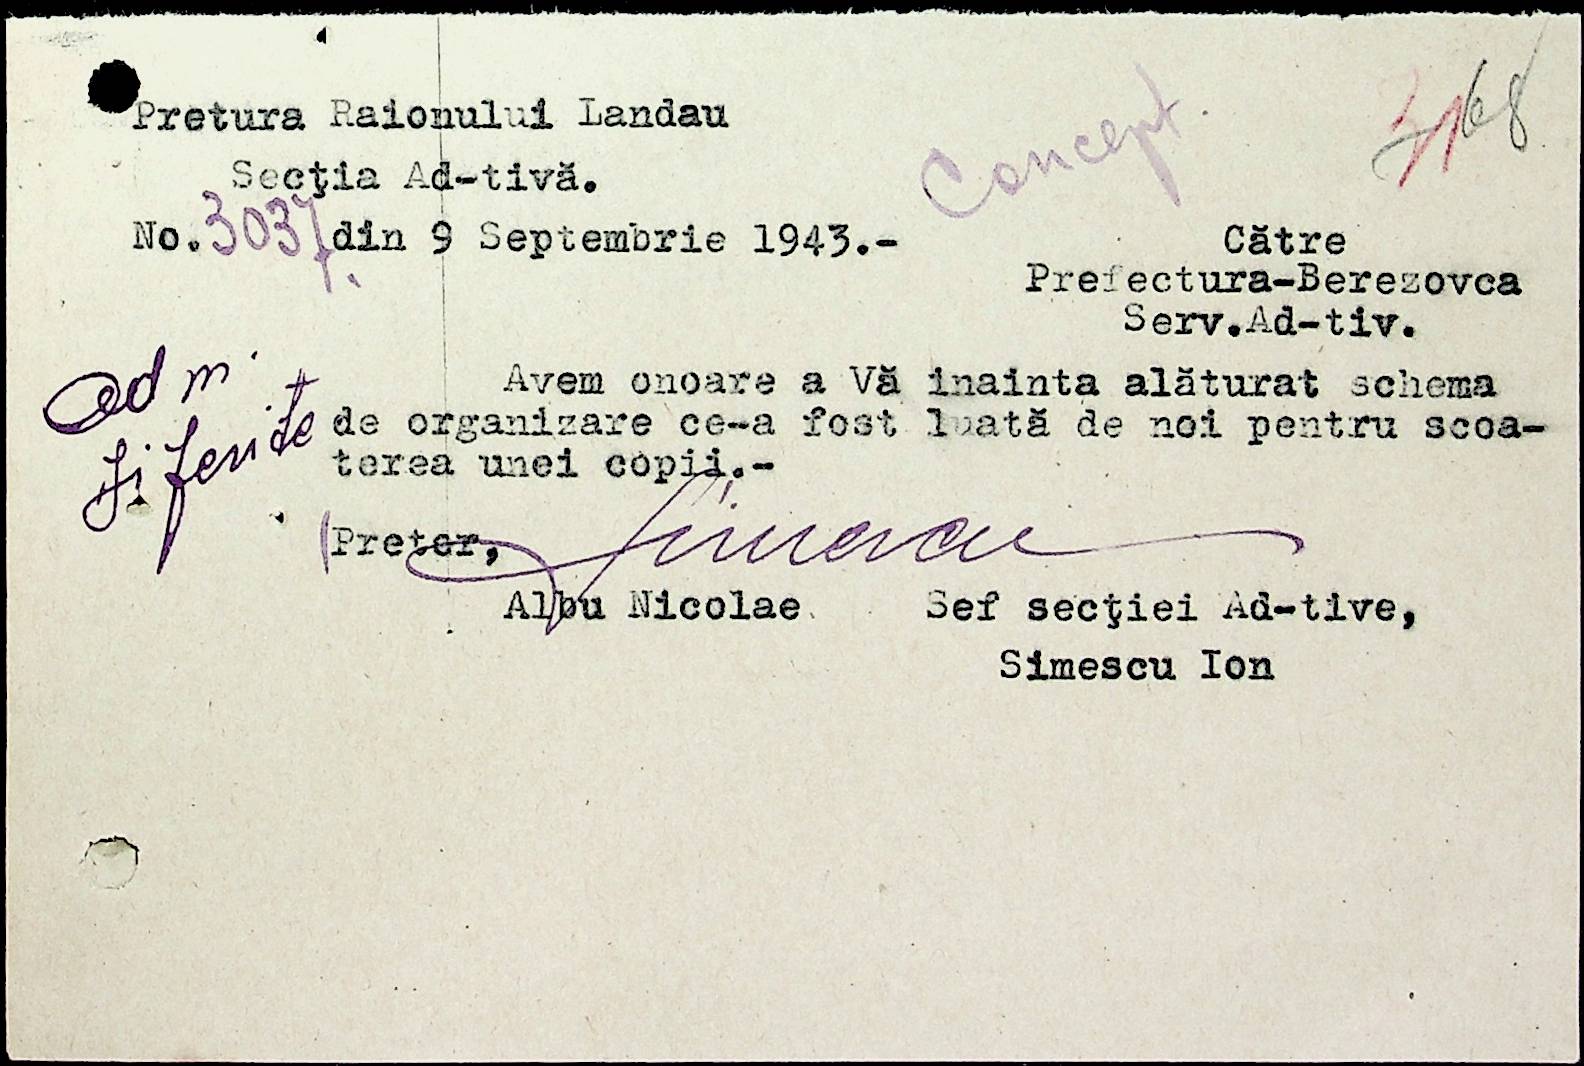 Pretura Raionului Landau
Secţia Ad-tivă.
No. 3037. din 9 Septembrie 1943.-
Concept
68
Către
Prefectura-Berezovca
Serv.Ad-tiv.
Adm.
diferite
Avem onoare a Vă inainta alăturat schema
de organizare ce-a fost luată de noi pentru scoa-
terea unei copii.-
Pretor,
Simescu
Albu Nicolae
Sef secţiei Ad-tive,
Simescu Ion